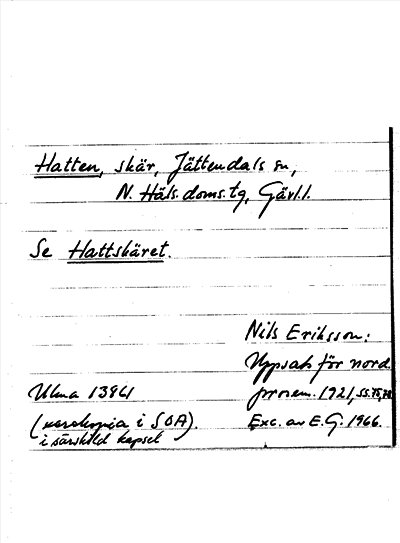 Hatten, skär, Jättendals sn,
N. Häls. doms. tg, Gävl. l.
Se Hattskäret.
Nils Eriksson:
Uppsats för nord.
Ulma 13861 prosem. 1921, ss. 75,
(xerokopia i SOA). Exc. av E. G. 1966.
i särskild kapsel